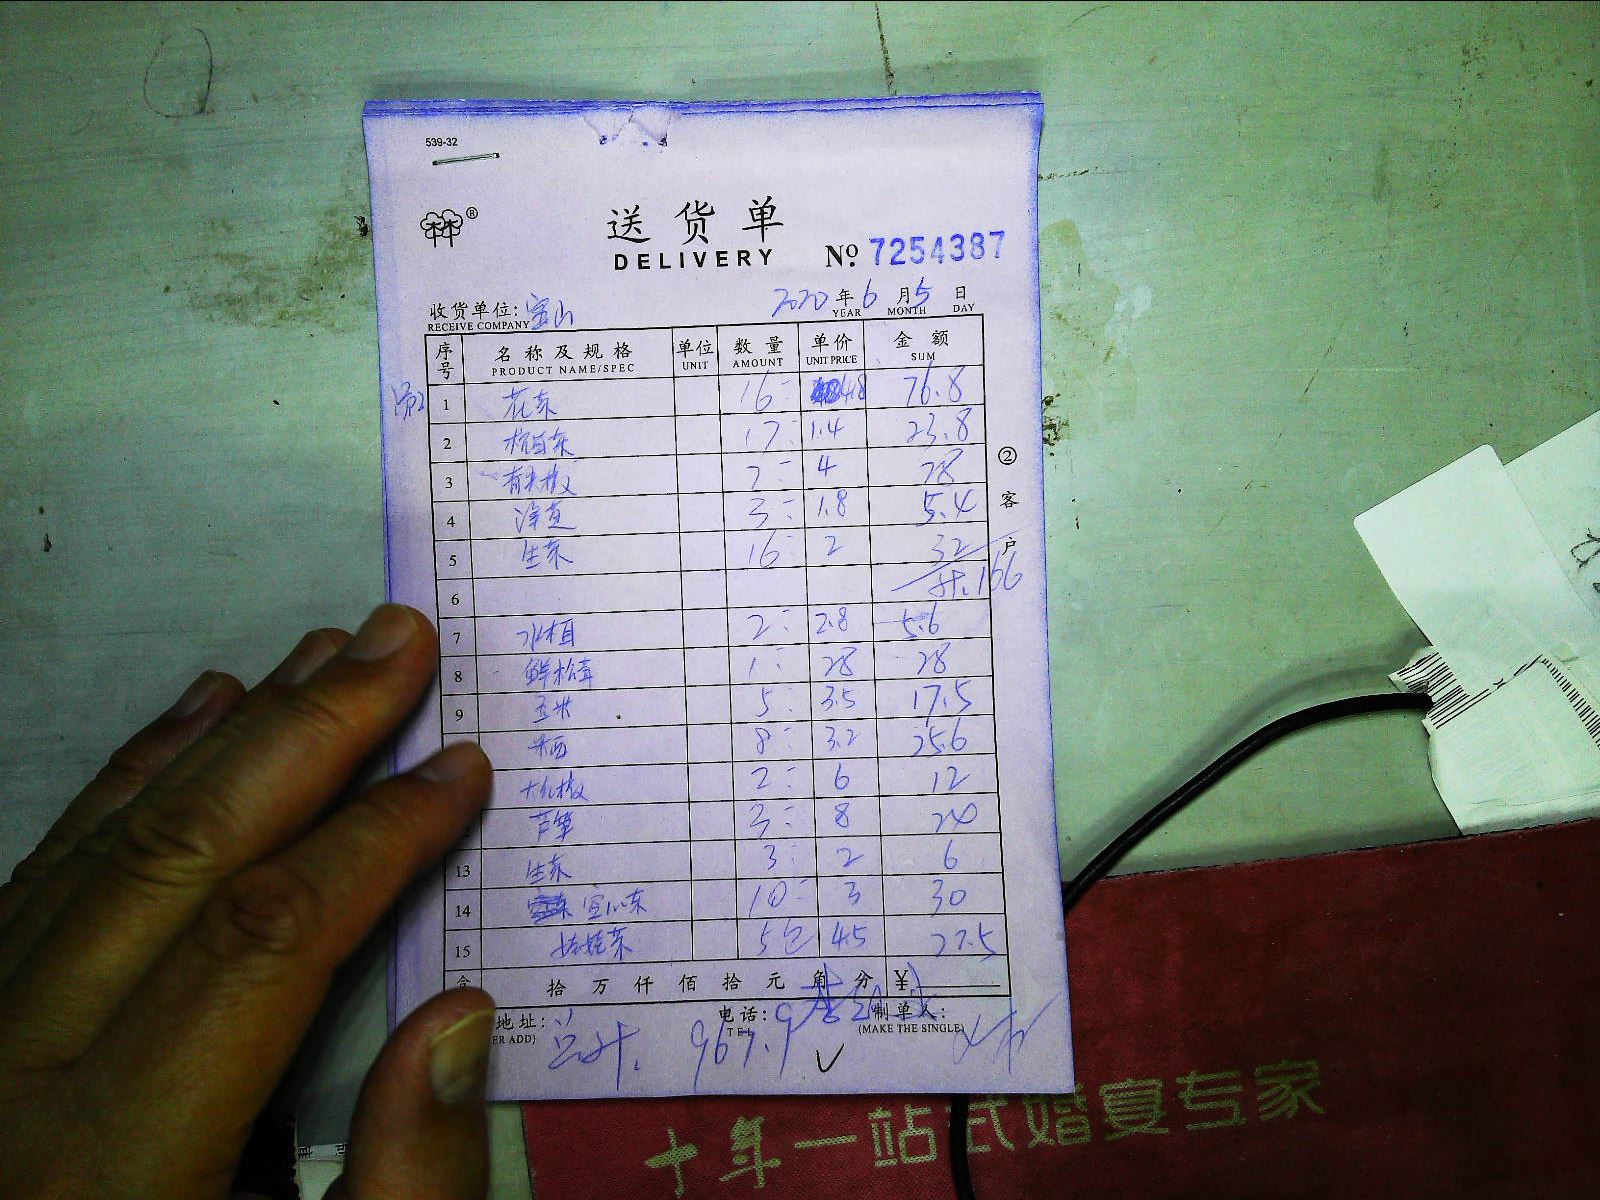 539-32
送货单
DELIVERY
№ 7254387
收货单位: 宝山
RECEIVE COMPANY
2020 年 6 月 5 日
YEAR MONTH DAY
序号 名称及规格 单位 数量 单价 金额
PRODUCT NAME/SPEC UNIT AMOUNT UNIT PRICE SUM
1 花菜 16 4.8 76.8
2 杭白菜 17 1.4 23.8
3 7 4 28
4 洋芝 3 1.8 5.4
5 生菜 16 2 32
6 计.166
7 2 2.8 5.6
8 鲜松茸 1 28 28
9 玉米 5 3.5 17.5
8 3.2 25.6
大红椒 2 6 12
芦笋 3 8 24
13 生菜 3 2 6
14 10 3 30
15 娃娃菜 5包 4.5 22.5
拾 万 仟 佰 拾 元 角 分 ¥
地址: 电话: 制单人:
ER ADD) TEL (MAKE THE SINGLE)
总计. 967.9
② 客户
十年一站式婚宴专家